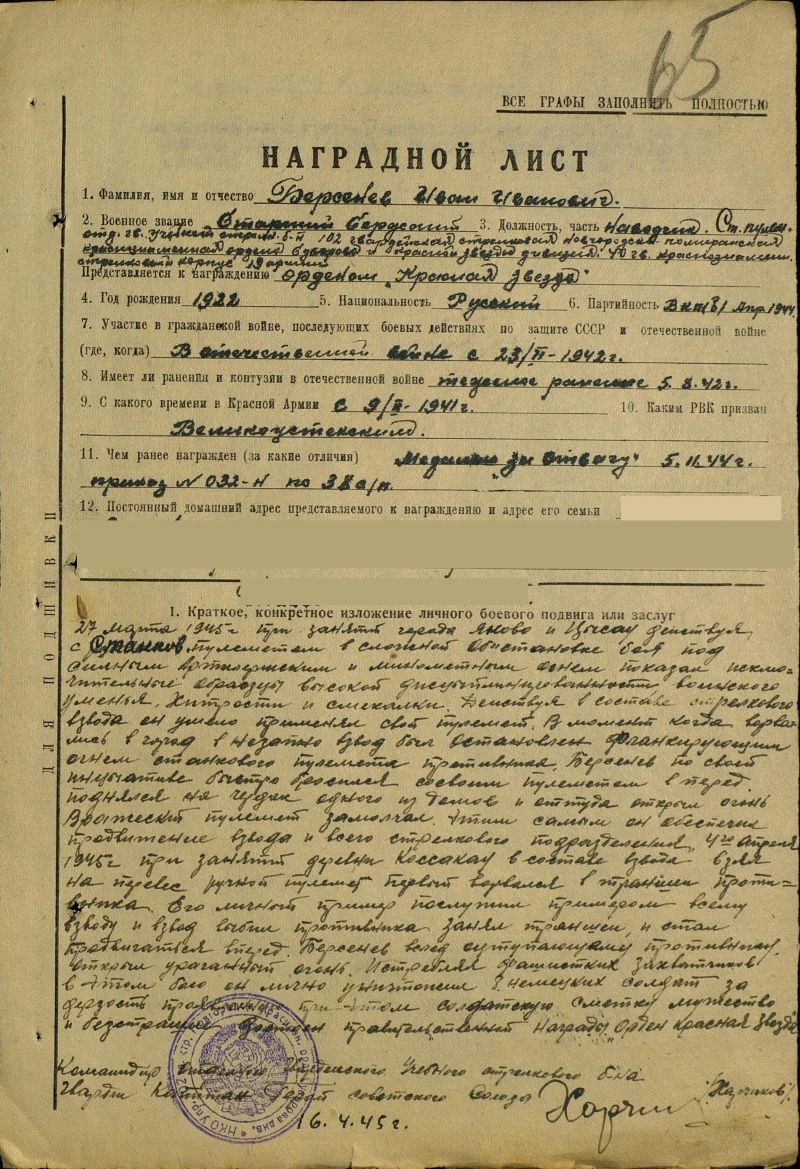 65
ВСЕ ГРАФЫ ЗАПОЛНЯТЬ ПОЛНОСТЬЮ
НАГРАДНОЙ ЛИСТ
1. Фамилия, имя и отчество Берсенев Иван Иванович.
2. Военное звание Старший Сержант 3. Должность, часть Наводчик. Ст. пулем-
отд. гв. Учебный стрелк. б-н 102 гвардейская стрелковая Новгородско-померанская
краснознаменная ордена Суворова и Красной звезды дивизия. 40 гв. краснознамен.
стрелковый корпус 19 армии
Представляется к награждению орденом „Красная звезда"
4. Год рождения 1922 5. Национальность Русский 6. Партийность ВКП(б) Апр. 1944
7. Участие в гражданской войне, последующих боевых действиях по защите СССР и отечественной войне
(где, когда) В отечественной войне с 23/II-1942 г.
8. Имеет ли ранения и контузии в отечественной войне тяжелое ранение 5.8.42 г.
9. С какого времени в Красной Армии с 9/ -1941 г. 10. Каким РВК призван
Великоустюкским.
11. Чем ранее награжден (за какие отличия) Медалью „за отвагу" 5.11.44 г.
приказ № 032-н по 38 с/п.
12. Постоянный домашний адрес представляемого к награждению и адрес его семьи
ДЛЯ ПОДШИВКИ
1. Краткое, конкретное изложение личного боевого подвига или заслуг
27 марта 1945 г при занятй города Яново и Цысау действуя
с Станков. пулеметом в сложной обстановке боя под
сильным Артиллерииским и минометным огнем показал исклю-
чительные образцы высокой дисцыплинированности, воинского
уменья, Хитрости и смекалки. Действуя в составе стрелкового
взвода он умело применял свой пулемет. В момент когда ворва-
лись в город внезапно взвод был остановлен фланкирующим
огнем станкового пулемета противника. Берсенев по своей
инициативе быстро бросился со своим пулеметом в перед
поднялся на чердак одного из домов и оттуда открыл огонь
Вражеский пулемет замолчал. Этим самым он обеспечил
продвижение взвода и всего стрелкового подразделения. 4го апреля
1945 г при занятй деревни Коссакау в составе взвода взяв
на перевес ручной пулемет первый ворвался в траншеи проти-
вника. Его личный пример послужил примером всему
взводу и взвод выбил противника занял траншеи, и стал
продвигаться вперед. Берсенев вслед отступающему противнику,
открыл ураганный огонь. Истребляя фашистких захватчиков
в этом бою он лично уничтожил немецких солдат за
дерзость при этом солдатскую сметку мужество
и бесстрашие достоен правительственной Награды „Орден Красная Звезда
Командир Отдельного Гвардейского Учебного стрелкового б-на
Гвардии Капитан Герой советского Союза /Харчиков/
16.4.45 г.